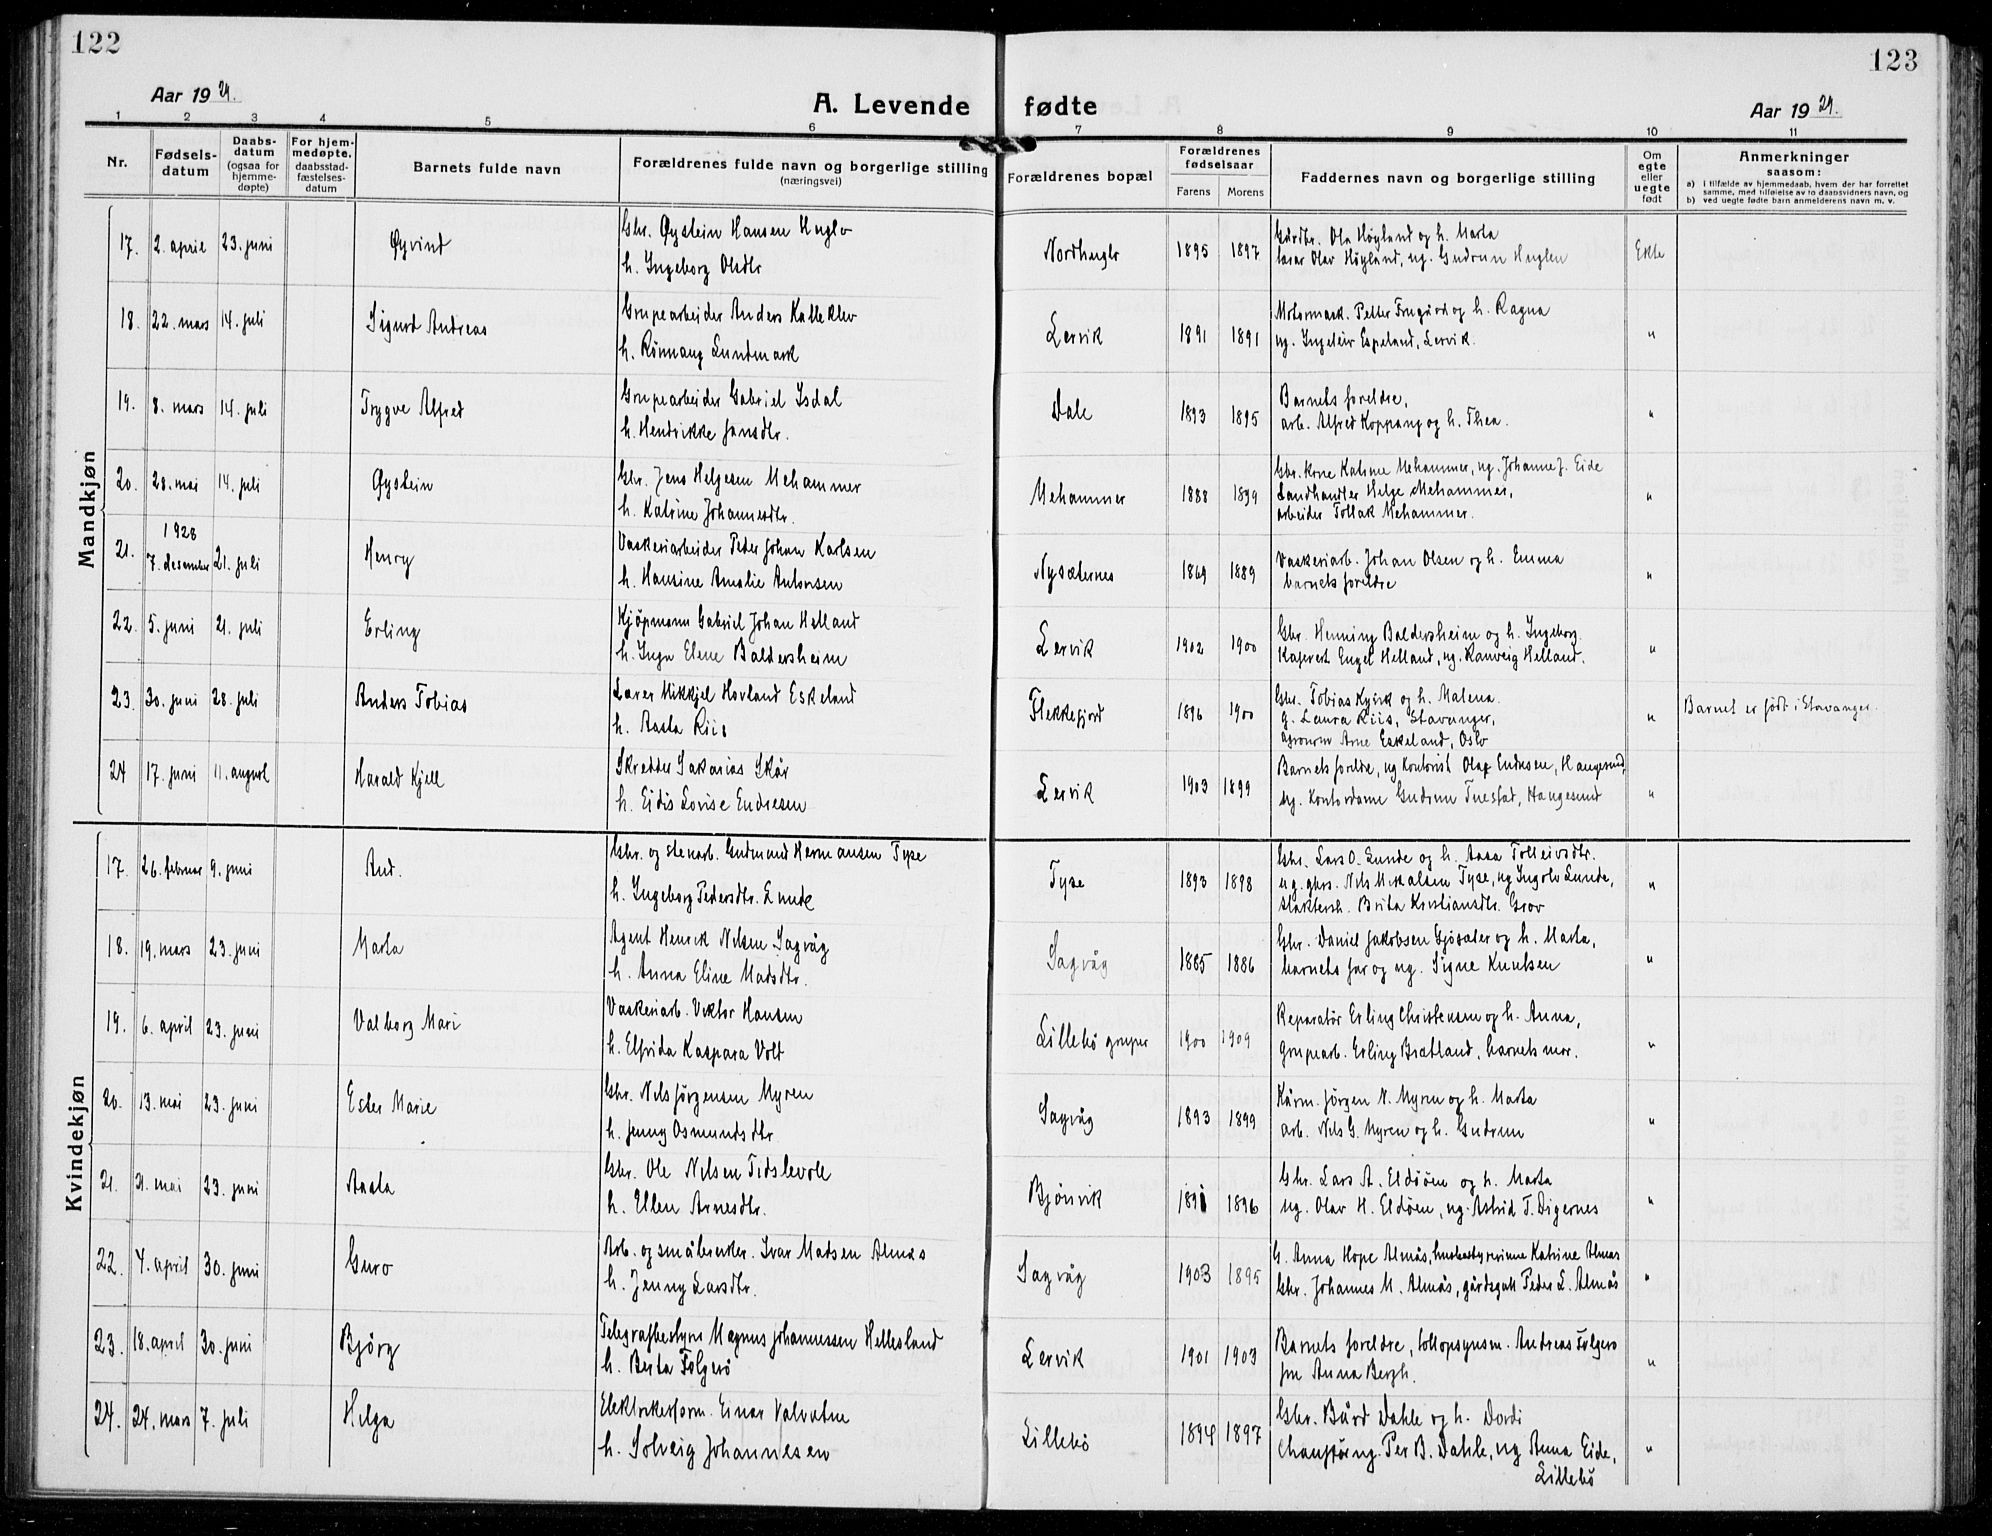 122
123
Aar 1929.
A. Levende fødte
Aar 1929.
1 2 3 4 5 6 7 8 9 10 11
Nr.
Fødsels-
datum
Daabs-
datum
(ogsaa for
hjemme-
døpte)
For hjem-
medøpte,
daabsstad-
fæstelses-
datum
Barnets fulde navn
Forældrenes fulde navn og borgerlige stilling
(næringsvei)
Forældrenes bopæl
Forældrenes
fødselsaar
Farens Morens
Faddernes navn og borgerlige stilling
Om
egte
eller
uegte
født
Anmerkninger
saasom:
a) I tilfælde av hjemmedaab, hvem der har forrettet
samme, med tilføielse av to daabsvidners navn, og
b) ved uegte fødte barn anmelderens navn m. v.
Mandkjøn
17. 2. april 23. juni Øyvind
Gbr. Øystein Hansen Huglo
h. Ingeborg Olsdtr
Nordhuglo 1895 1897
Gårdbr. Ola Høyland og h. Marta
lærar Olav Høyland, ug. Gudrun Huglen
Ekte
18. 22. mars 14. juli Sigurd Andreas
Grupearbeider Anders Kalleklev
h. Rønnaug Lundmark
Lervik 1891 1891
Motormask. Petter Frugård og h. Ragna
ug. Ingeleiv Espeland, Lervik.
"
19. 8. mars 14. juli Trygve Alfred
Grupearbeider Gabriel Isdal
h. Hendrikke Jansdtr.
Dale 1893 1895
Barnets foreldre,
arb. Alfred Koppang og h. Thea.
"
20. 28. mai 14. juli Øystein
Gbr. Jens Helgesen Mehammer
h. Katrine Johannesdtr.
Mehammer 1888 1899
Gbr.kone Katrine Mehammer, ug. Johanne J. Eide
Landhandler Helge Mehammer,
arbeider Tollak Mehammer.
"
21. 1928
7. desember 21. juli Henry
Vaskeriarbeider Peder Johan Karlsen
h. Hansine Amalie Antonsen
Nysæternes 1869 1889
Vaskeriarb. Johan Olsen og h. Emma
barnets foreldre
"
22. 5. juni 21. juli Erling
Kjøpmann Gabriel Johan Helland
h. Inga Elene Baldersheim
Lervik 1902 1900
Gbr. Henning Baldersheim og h. Ingeborg.
Engel Helland, ug. Ranveig Helland.
"
23. 30. juni 28. juli Anders Tobias
Lærer Mikkjel Hovland Eskeland
h. Aasta Riis
Flekkefjord 1896 1900
Gbr. Tobias Kyvik og h. Malena.
g. Laura Riis, Stavanger,
agronom Arne Eskeland, Oslo
" Barnet er født i Stavanger.
24 17. juni 11. august Harald Kjell
Skredder Sakarias Skår
h. Eidis Lovise Endresen
Lervik 1903 1899
Barnets foreldre, ug Kontorist Olaf Endresen, Haugesund,
ug. Kontordame Gudrun Tuestad, Haugesund
"
Kvindekjøn
17. 26. februar 9. juni Aud.
Gbr. og stenarb. Gudmund Hermansen Tyse
h. Ingeborg Pedersdtr. Lunde
Tyse 1893 1898
Gbr. Lars O. Lunde og h. Aasa Tolleivsdtr.
ug. gbrs. Nils Mikalsen Tyse, ug Ingolv Lunde,
slaktersh. Brita Kristiansdtr. Grov
"
18. 19. mars 23. juni Marta
Agent Henrik Nilsen Sagvåg
h. Anna Eline Madsdtr.
Sagvåg 1885 1886
Gbr. Daniel Jakobsen Gjøsæter og h. Marta,
barnets far og ug. Signe Knutsen
"
19. 6. april 23. juni Valborg Mari
Vaskeriarb. Viktor Hansen
h. Elfrida Kaspara Volt
Lillebø gruper 1900 1909
Reparatør Erling Christensen og h. Anna,
Grupearb. Erling Brætland, barnets mor.
"
20. 13. mai 23. juni Ester Marie
Gbr. Nils Jørgensen Myren
h. Jenny Osmundsdtr
Sagvåg 1893 1899
Kårm. Jørgen N. Myren og h. Marta
arb. Nils G. Myren og h. Gudrun
"
21. 21. mai 23. juni Aasta
Gbr. Ole Nilsen Tidslevoll
h. Ellen Arnesdtr.
Bjønvik 1891 1896
Gbr. Lars A. Eldøen og h. Marta
ug. Olav H. Eldøen, ug. Astrid T. Digernes
"
22. 4. april 30. juni Guro
Arb. og småbruker. Ivar Madsen Almås
h. Jenny Larsdtr.
Sagvåg 1903 1895
G. Anna Hope Almås, husbestyrerinne Katrine Almås
Gbr. Johannes M. Almås, gårdsgutt Peder L. Almås
"
23. 18. april 30. juni Bjørg
Telegrafbestyrer Magnus Johannessen Hellesland
h. Berta Folgerø
Lervik 1901 1903
Barnets foreldre, tollopsynsm. Andreas Folgerø
frk Anna Bergh.
"
24. 24. mars 7. juli Helga
Elektrikerform. Einar Valvatne
h. Solveig Johannesen
Lillebø 1894 1897
Gbr. Bård Dahle og h. Dordi
Chauffør ug. Per B. Dahle, ug Anna Eide,
Lillebø
"